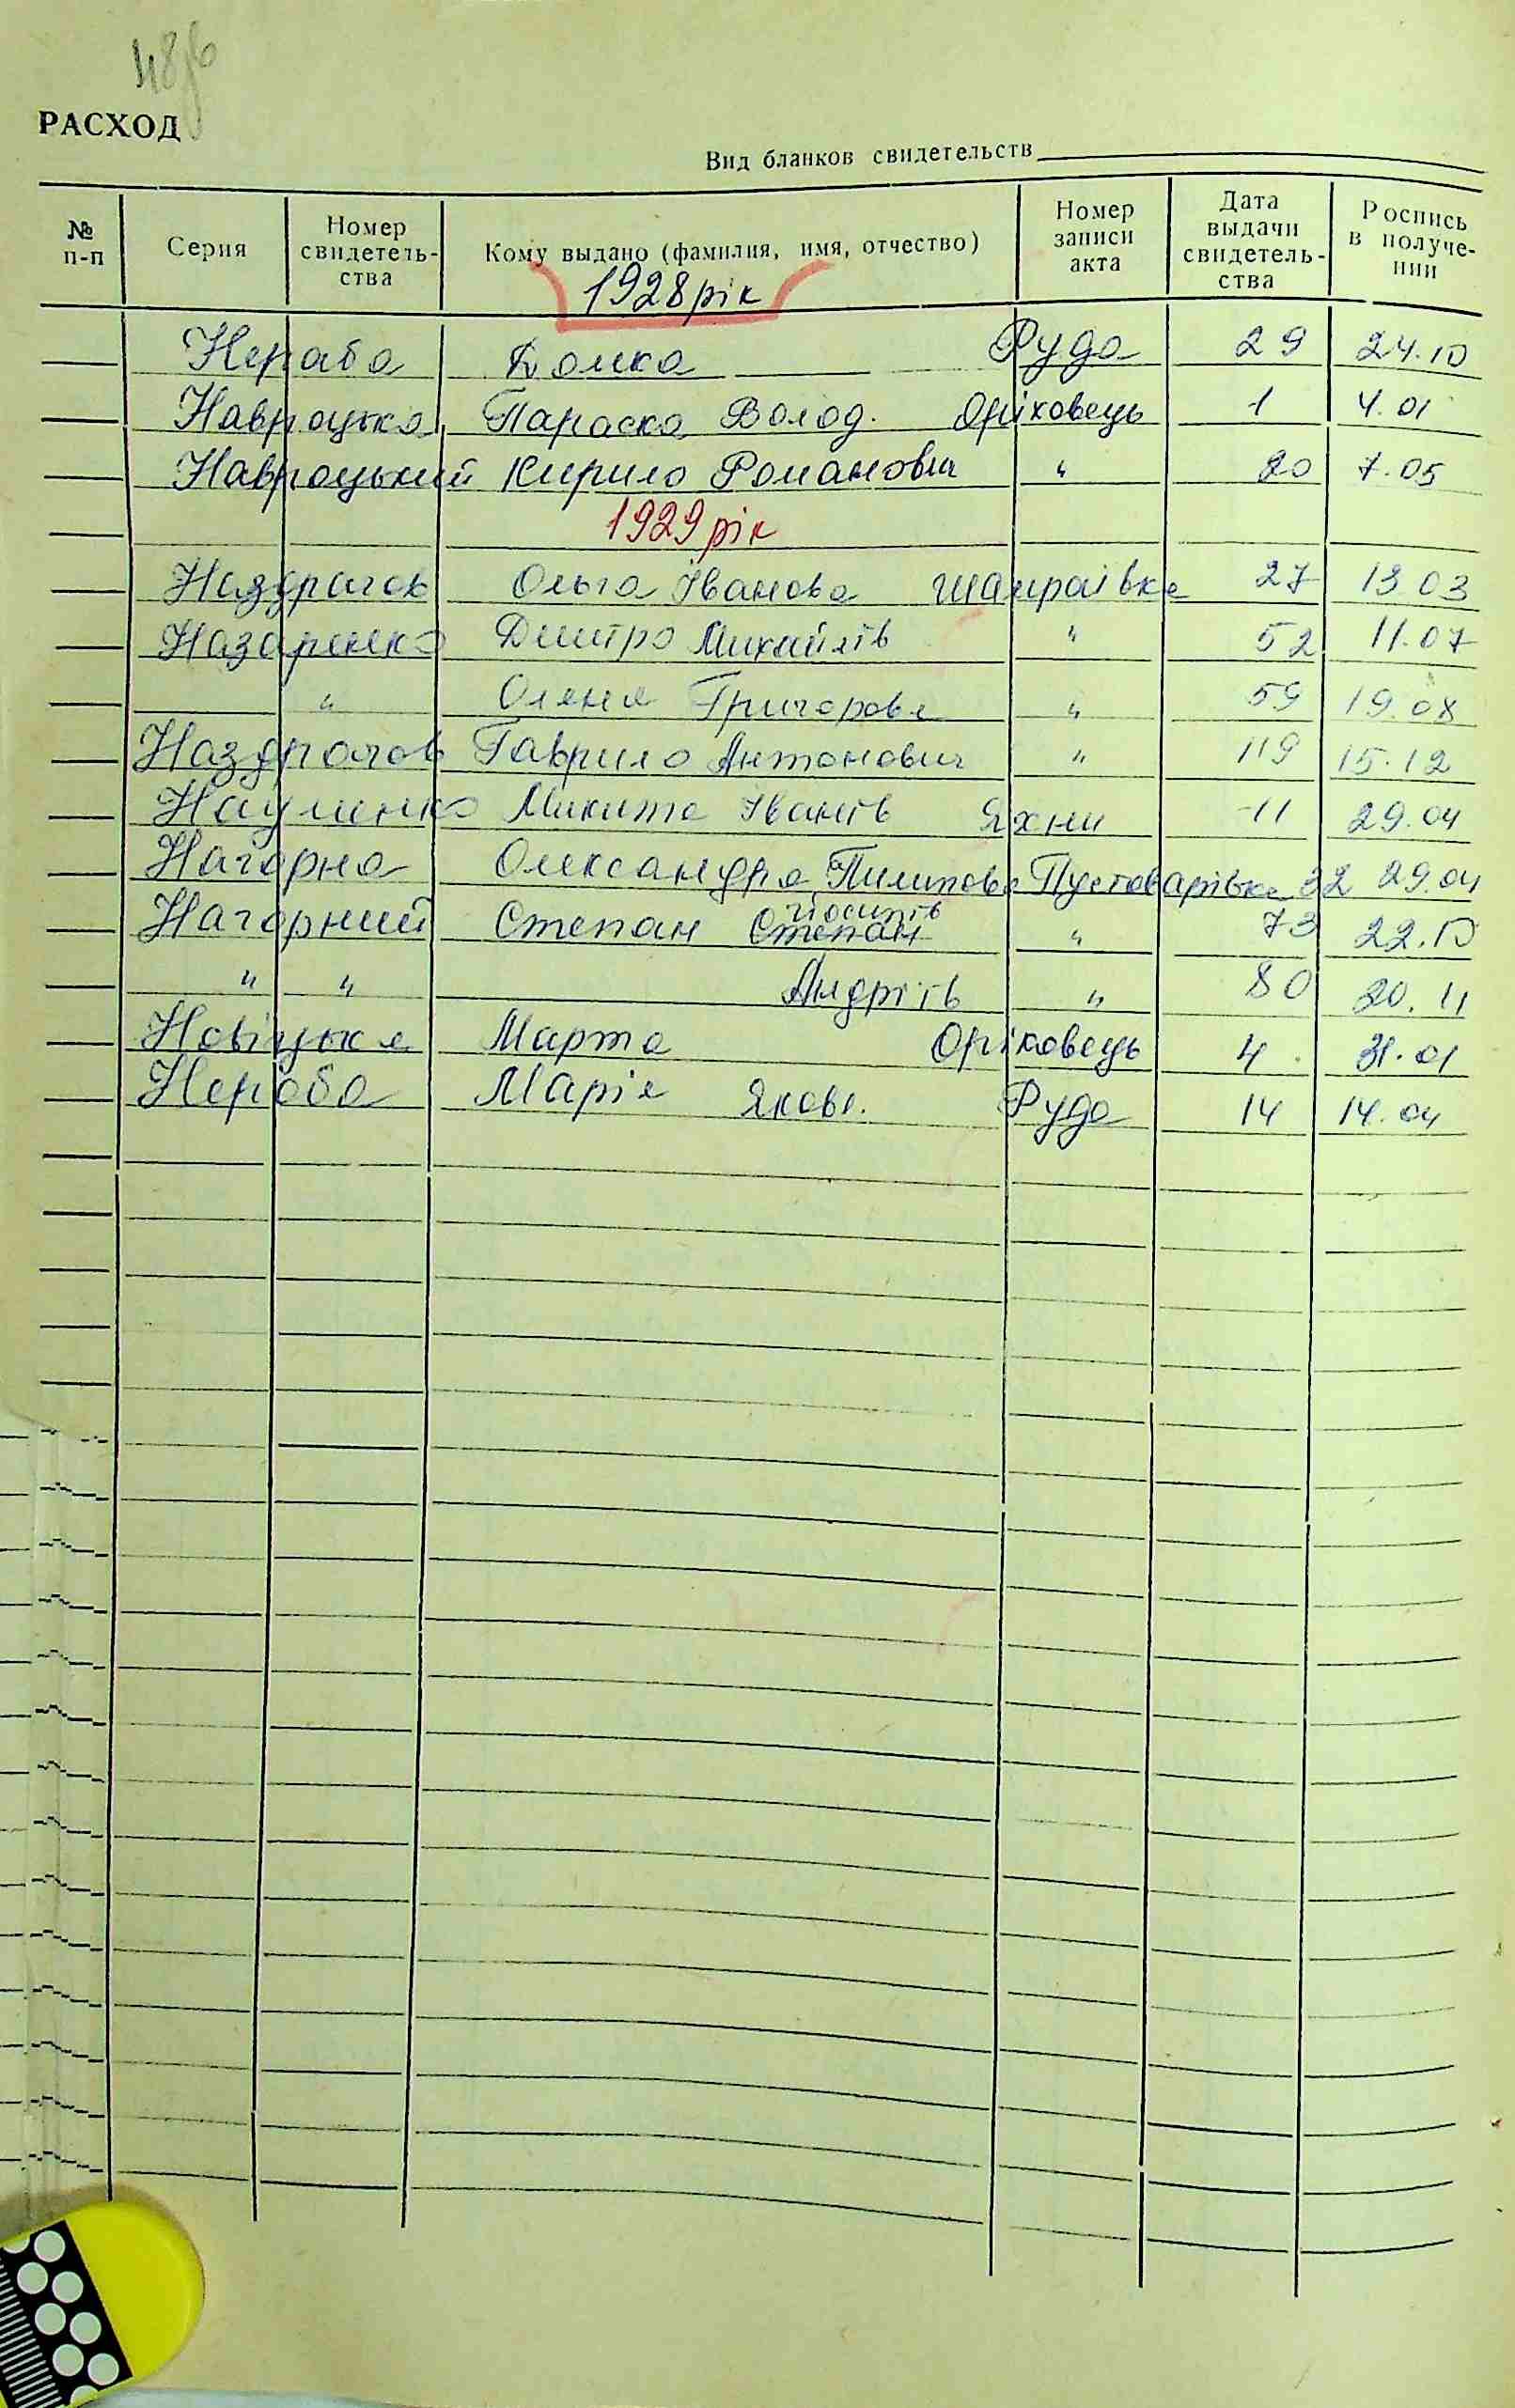 РАСХОД
Вид бланков свидетельств
№ п-п Серия Номер свидетель-ства Кому выдано (фамилия, имя, отчество) Номер записи акта Дата выдачи свидетель-ства Роспись в получе-нии
1928 рік
Нераба Домка Руда 29 24.10
Навроцька Параска Волод. Оріховець 1 4.01
Навроцький Кирило Романович " 20 7.05
1929 рік
Ноздрачов Ольга Іванова Шапраївка 27 13 03
Назаренко Дмитро Михайлів " 52 11.07
" Олена Григорова " 59 19.08
Наздрачов Гаврило Антонович " 119 15.12
Науменко Микита Іванів Яхни 11 29.04
Нагорна Олександра Пилипова Пустоварівка 32 29.04
Нагорний Степан Йосипів " 73 22.10
" " Андріїв " 80 20.11
Новіцька Марта Оріховець 4 31.01
Нераба Марія Яковл. Руда 14 14.04